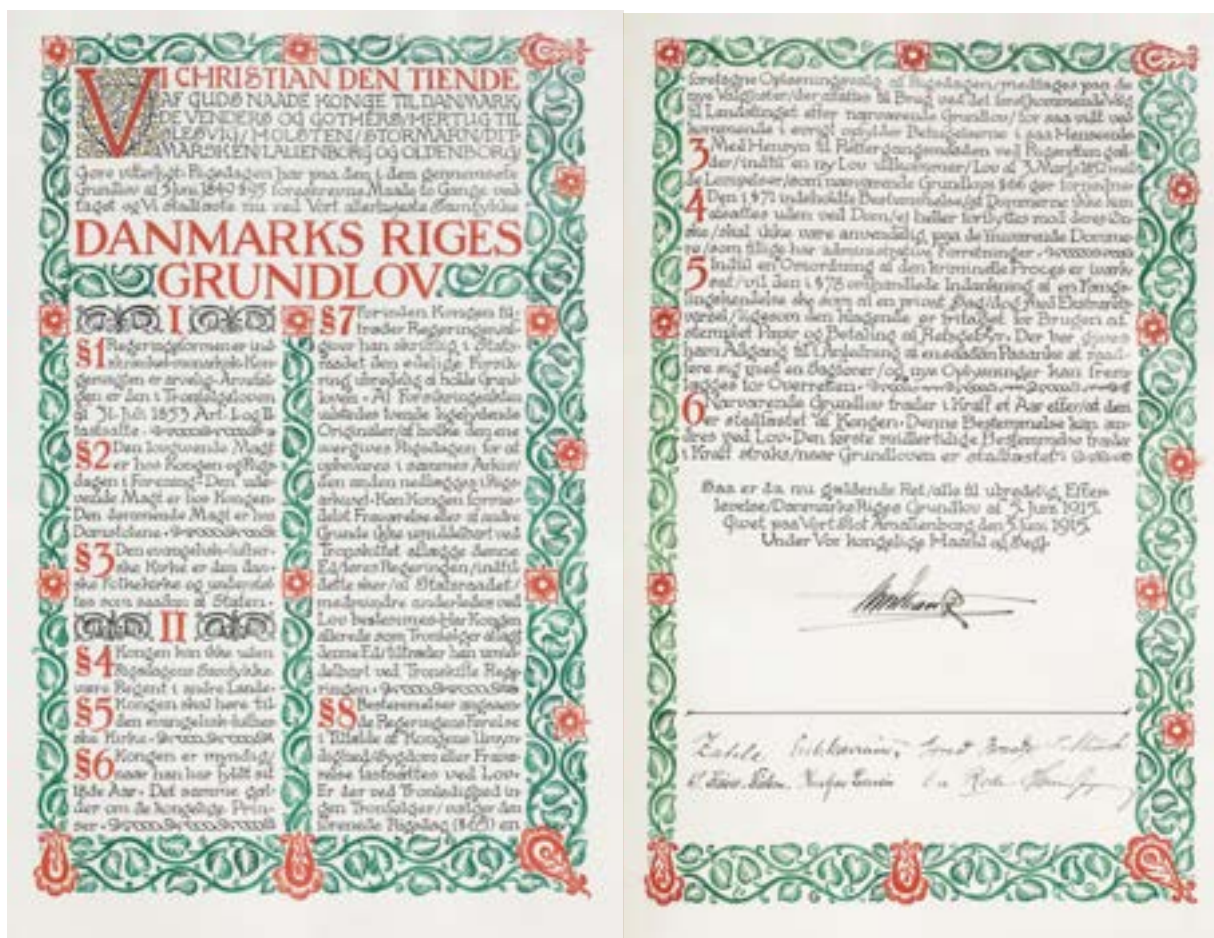 VI CHRISTIAN DEN TIENDE
AF GUDS NAADE KONGE TIL DANMARK/
DE VENDERS OG GOTHERS/HERTUG TIL
SLESVIG/HOLSTEN/STORMARN/DIT-
MARSKEN/LAUENBORG OG OLDENBORG/
Gøre vitterligt: Rigsdagen har paa den i den gennemsete
Grundlov af 5 Juni 1849 §95 foreskrevne Maade
taget og Vi stadfæste nu ved Vort allerhøjeste Samtykke
DANMARKS RIGES
GRUNDLOV.
I
§1 Regeringsformen er ind-
skrænket-monarkisk. Kon-
gemagten er arvelig. Arveføl-
gen er den i Tronfølgeloven
af 31. Juli 1853 Art. I og II
fastsatte.
§2 Den lovgivende Magt
er hos Kongen og Rigs-
dagen i Forening. Den udø-
vende Magt er hos Kongen.
Den dømmende Magt er hos
Domstolene.
§3 Den evangelisk-luther-
ske Kirke er den dan-
ske Folkekirke og understøt-
tes som saadan af Staten.
II
§4 Kongen kan ikke uden
Rigsdagens Samtykke
være Regent i andre Lande.
§5 Kongen skal høre til
den evangelisk-luther-
ske Kirke.
§6 Kongen er myndig/
naar han har fyldt sit
18de Aar. Det samme gæl-
der om de kongelige Prin-
ser.
§7 Forinden Kongen til-
træder Regeringen/af-
giver han skriftlig i Stats-
raadet den edelige Forsik-
ring ubrødelig at holde Grund-
loven. Af Forsikringsakten
udstedes tvende ligelydende
Originaler/af hvilke den ene
overgives Rigsdagen for at
opbevares i sammes Arkiv/
den anden nedlægges i Rigs-
arkivet. Kan Kongen forme-
delst Fraværelse eller af andre
Grunde ikke umiddelbart ved
Tronskiftet aflægge denne
Ed/føres Regeringen/indtil
dette sker/af Statsraadet/
medmindre anderledes ved
Lov bestemmes. Har Kongen
allerede som Tronfølger aflagt
denne Ed/tiltræder han umid-
delbart ved Tronskifte Rege-
ringen.
§8 Bestemmelser angaaen-
de Regeringens Førelse
i Tilfælde af Kongens Umyn-
dighed/Sygdom eller Fravæ-
relse fastsættes ved Lov.
Er der ved Tronledighed in-
gen Tronfølger/vælger den
forenede Rigsdag (§65) en
foretagne Opløsningsvalg af Rigsdagen/medtages paa de
nye Valglister/der affattes til Brug ved det førstkommende Valg
til Landstinget efter nærværende Grundlov/for saa vidt ved-
kommende i øvrigt opfylder Betingelserne i saa Henseende
3 Med Hensyn til Rettergangsmaaden ved Rigsretten gæl-
der/indtil en ny Lov udkommer/Lov af 3. Marts 1852 med
de Lempelser/som nærværende Grundlovs §66 gør fornødne
4 Den i §71 indeholdte Bestemmelse/at Dommerne ikke kan
afsættes uden ved Dom/ej heller forflyttes mod deres Øn-
ske/skal ikke være anvendelig paa de nuværende Domme-
re/som tillige har administrative Forretninger.
5 Indtil en Omordning af den kriminelle Proces er iværk-
sat/vil den i §78 omhandlede Indankning af en Fængs-
lingskendelse ske som af en privat Sag/dog med Ekstrarets-
varsel/ligesom den klagende er fritaget for Brugen af
stemplet Papir og Betaling af Retsgebyr. Der bør gives
ham Adgang til i Anledning af en saadan Paaanke at raad-
føre sig med en Sagfører/og nye Oplysninger kan frem-
lægges for Overretten.
6 Nærværende Grundlov træder i Kraft et Aar efter/at den
er stadfæstet af Kongen. Denne Bestemmelse kan æn-
dres ved Lov. Den første midlertidige Bestemmelse træder
i Kraft straks/naar Grundloven er stadfæstet.
Saa er da nu gældende Ret/alle til ubrødelig Efter-
levelse/Danmarks Riges Grundlov af 5. Juni 1915.
Givet paa Vort Slot Amalienborg den 5. Juni 1915.
Under Vor kongelige Haand og Segl.
Christian R
Zahle